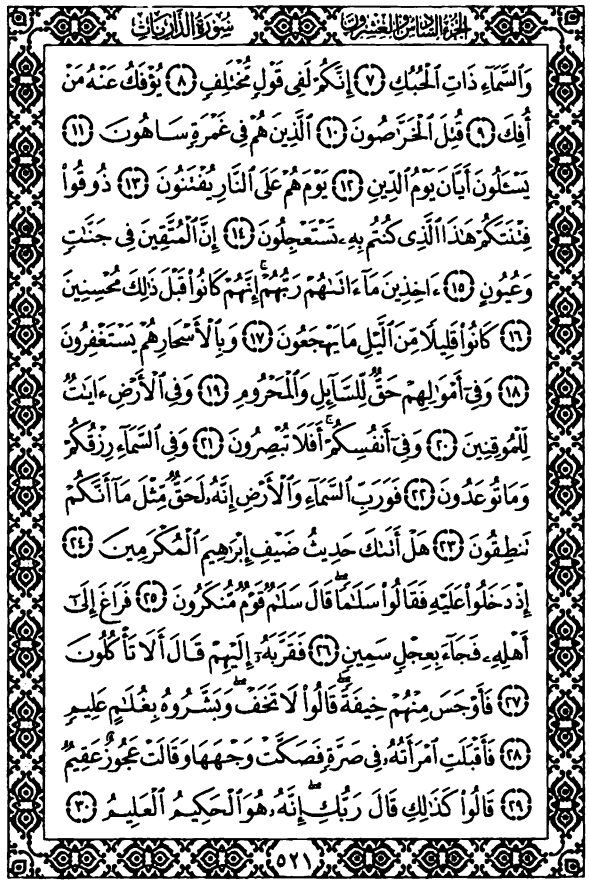 الجزء السادس والعشرون
سورة الذاريات
وَالسَّمَآءِ ذَاتِ الْحُبُكِ ٧ إِنَّكُمْ لَفِى قَوْلٍ مُّخْتَلِفٍ ٨ يُؤْفَكُ عَنْهُ مَنْ
أُفِكَ ٩ قُتِلَ الْخَرَّٰصُونَ ١٠ الَّذِينَ هُمْ فِى غَمْرَةٍ سَاهُونَ ١١
يَسْـَٔلُونَ أَيَّانَ يَوْمُ الدِّينِ ١٢ يَوْمَ هُمْ عَلَى النَّارِ يُفْتَنُونَ ١٣ ذُوقُوا۟
فِتْنَتَكُمْ هَٰذَا الَّذِى كُنتُم بِهِۦ تَسْتَعْجِلُونَ ١٤ إِنَّ الْمُتَّقِينَ فِى جَنَّٰتٍ
وَعُيُونٍ ١٥ ءَاخِذِينَ مَآ ءَاتَىٰهُمْ رَبُّهُمْ ۚ إِنَّهُمْ كَانُوا۟ قَبْلَ ذَٰلِكَ مُحْسِنِينَ
١٦ كَانُوا۟ قَلِيلًا مِّنَ الَّيْلِ مَا يَهْجَعُونَ ١٧ وَبِالْأَسْحَارِ هُمْ يَسْتَغْفِرُونَ
١٨ وَفِىٓ أَمْوَٰلِهِمْ حَقٌّ لِّلسَّآئِلِ وَالْمَحْرُومِ ١٩ وَفِى الْأَرْضِ ءَايَٰتٌ
لِّلْمُوقِنِينَ ٢٠ وَفِىٓ أَنفُسِكُمْ ۚ أَفَلَا تُبْصِرُونَ ٢١ وَفِى السَّمَآءِ رِزْقُكُمْ
وَمَا تُوعَدُونَ ٢٢ فَوَرَبِّ السَّمَآءِ وَالْأَرْضِ إِنَّهُۥ لَحَقٌّ مِّثْلَ مَآ أَنَّكُمْ
تَنطِقُونَ ٢٣ هَلْ أَتَىٰكَ حَدِيثُ ضَيْفِ إِبْرَٰهِيمَ الْمُكْرَمِينَ ٢٤
إِذْ دَخَلُوا۟ عَلَيْهِ فَقَالُوا۟ سَلَٰمًا ۖ قَالَ سَلَٰمٌ قَوْمٌ مُّنكَرُونَ ٢٥ فَرَاغَ إِلَىٰٓ
أَهْلِهِۦ فَجَآءَ بِعِجْلٍ سَمِينٍ ٢٦ فَقَرَّبَهُۥٓ إِلَيْهِمْ قَالَ أَلَا تَأْكُلُونَ
٢٧ فَأَوْجَسَ مِنْهُمْ خِيفَةً ۖ قَالُوا۟ لَا تَخَفْ ۖ وَبَشَّرُوهُ بِغُلَٰمٍ عَلِيمٍ
٢٨ فَأَقْبَلَتِ امْرَأَتُهُۥ فِى صَرَّةٍ فَصَكَّتْ وَجْهَهَا وَقَالَتْ عَجُوزٌ عَقِيمٌ
٢٩ قَالُوا۟ كَذَٰلِكِ قَالَ رَبُّكِ ۖ إِنَّهُۥ هُوَ الْحَكِيمُ الْعَلِيمُ ٣٠
٥٢١